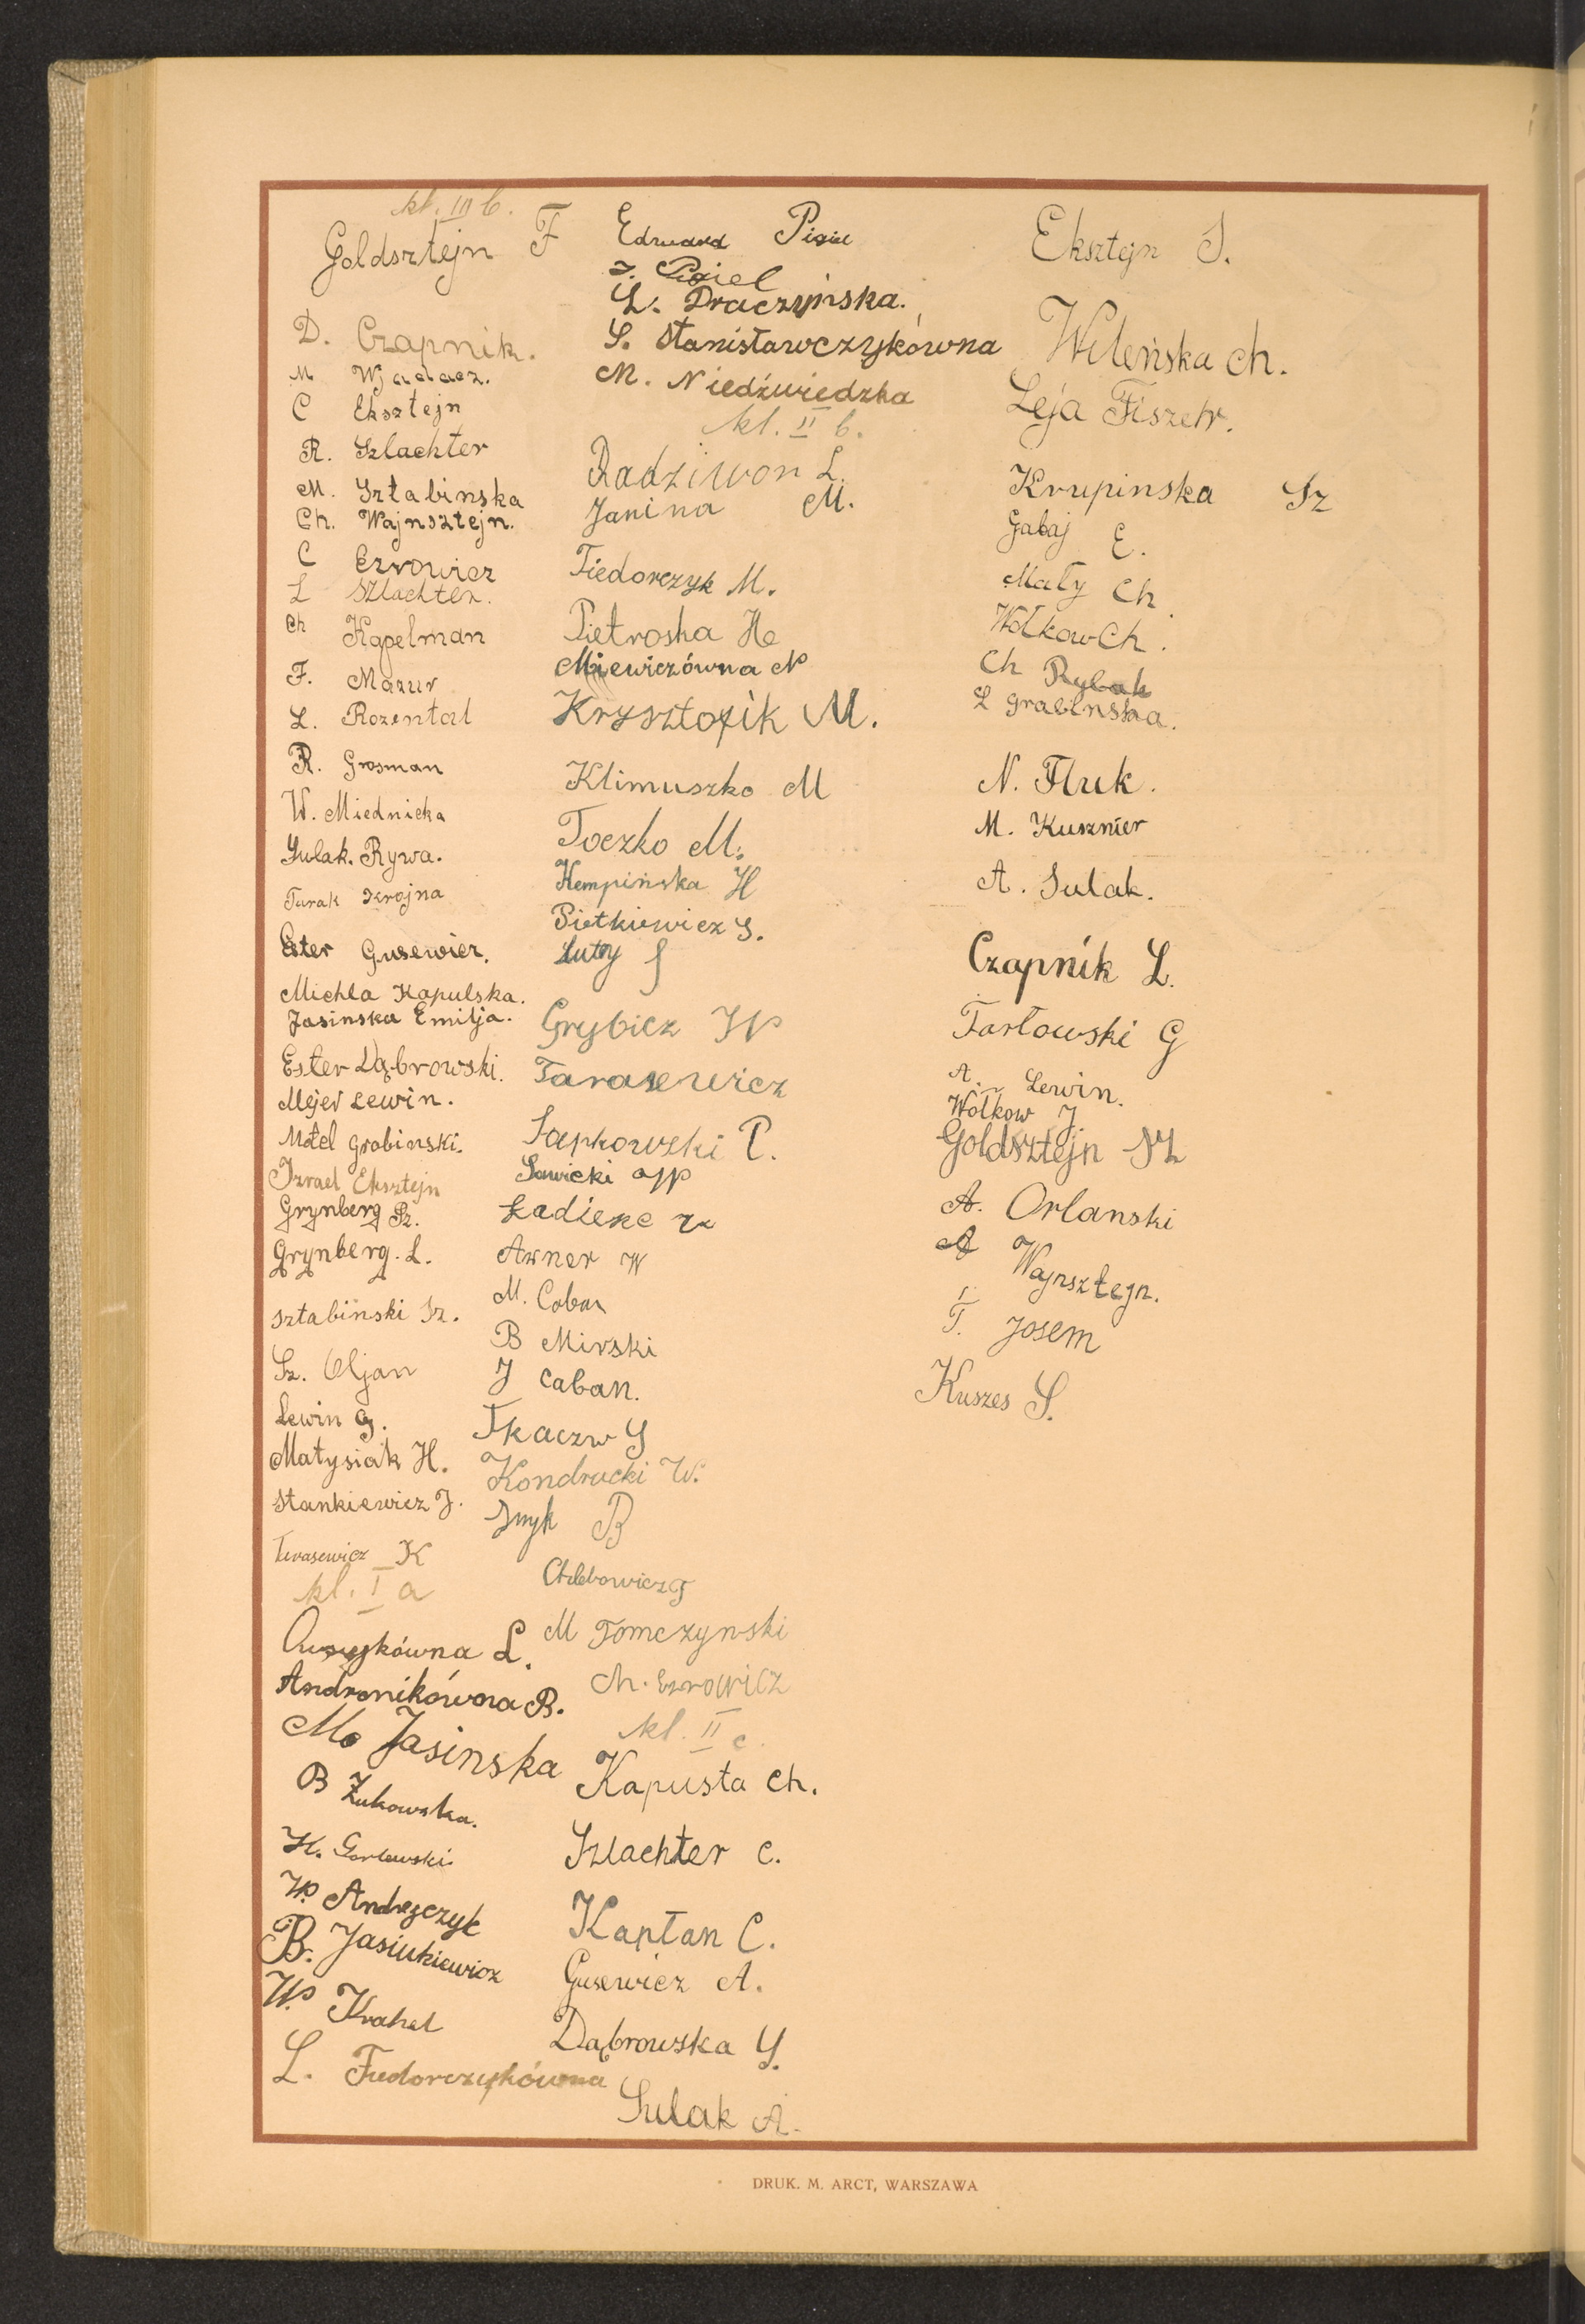 kl. III b.
Goldsztejn F
D. Czapnik.
M Wjadacz.
C Eksztejn
R. Szlachter
M. Sztabinska
Ch. Wajnsztejn.
C Ezrowicz
L Szlachter.
Ch Kapelman
F. Mazur
L. Rozental
R. Grosman
W. Miednicka
Sulak. Rywa.
Turak Skrojna
Ester Gusewicz.
Michla Kapulska.
Jasinska Emilja.
Ester Dąbrowski.
Mejer Lewin.
Motel Grabinski.
Izrael Eksztejn
Grynberg Sz.
Grynberg. L.
Sztabinski Sz.
Sz. Oljan
Lewin G.
Matysiak H.
Stankiewicz J.
Tarasewicz K
kl. I a
L.
Andronikówna B.
M. Jasinska
B Żukowska.
H. Gorlewski
W. Andrejczyk
B. Jasiukiewicz
W. Krahel
L. Fiedorczykówna
Edward Pigiel
J. Pigiel
L. Draczyńska.
S. Stanisławczykówna
M. Niedźwiedzka
kl. II b.
Radziwon L.
Janina M.
Fiedorczyk M.
Pietroska He
Miewiczówna N
Krysztofik M.
Klimuszko M
Toczko M.
Kempińska H
Pietkiewicz S.
Luty S
Grybicz W
Tarasewicz
Sapkowski P.
Sawicki W
Ładiene
Azner W
M. Caban
B Mirski
J Caban.
Tkaczw S
Kondracki W.
Smyk B
Chlebowicz T
M Tomczynski
M. Ezrowicz
kl. II c.
Kapusta Ch.
Szlachter C.
Kapłan C.
Gusewicz A.
Dąbrowska S.
Sulak A.
Eksztejn S.
Wileńska Ch.
Leja Fiszer.
Krupinska Sz
Gabaj E.
Mały Ch
Wołkow Ch.
Ch Rybak
L Grabinska.
N. Fluk.
M. Kusznier
A. Sulak.
Czapnik L.
Tartowski G
A. Lewin.
Wołkow J
Goldsztejn M
A. Orlanski
A Wajnsztejn.
T. Josem
Kuszes S.
DRUK. M. ARCT, WARSZAWA